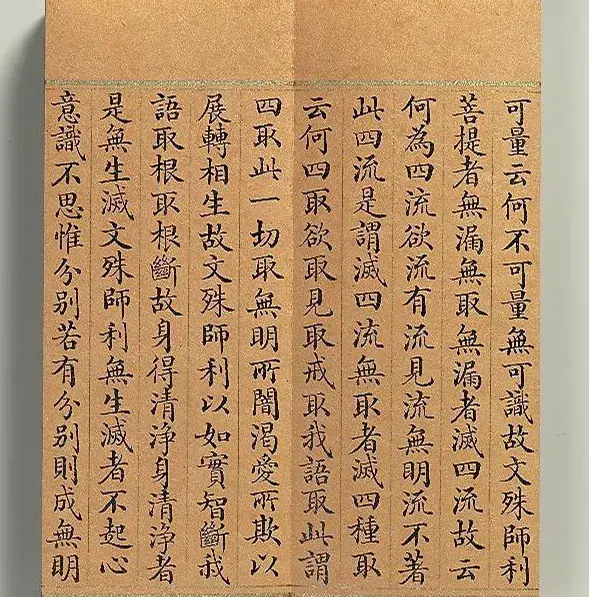 可量云何不可量無可識故文殊師利
菩提者無漏無取無漏者滅四流故云
何為四流欲流有流見流無明流不著
此四流是謂滅四流無取者滅四種取
云何四取欲取見取戒取我語取此謂
四取此一切取無明所闇渴愛所欺以
展轉相生故文殊師利以如實智斷我
語取根取根斷故身得清淨身清淨者
是無生滅文殊師利無生滅者不起心
意識不思惟分別若有分別則成無明